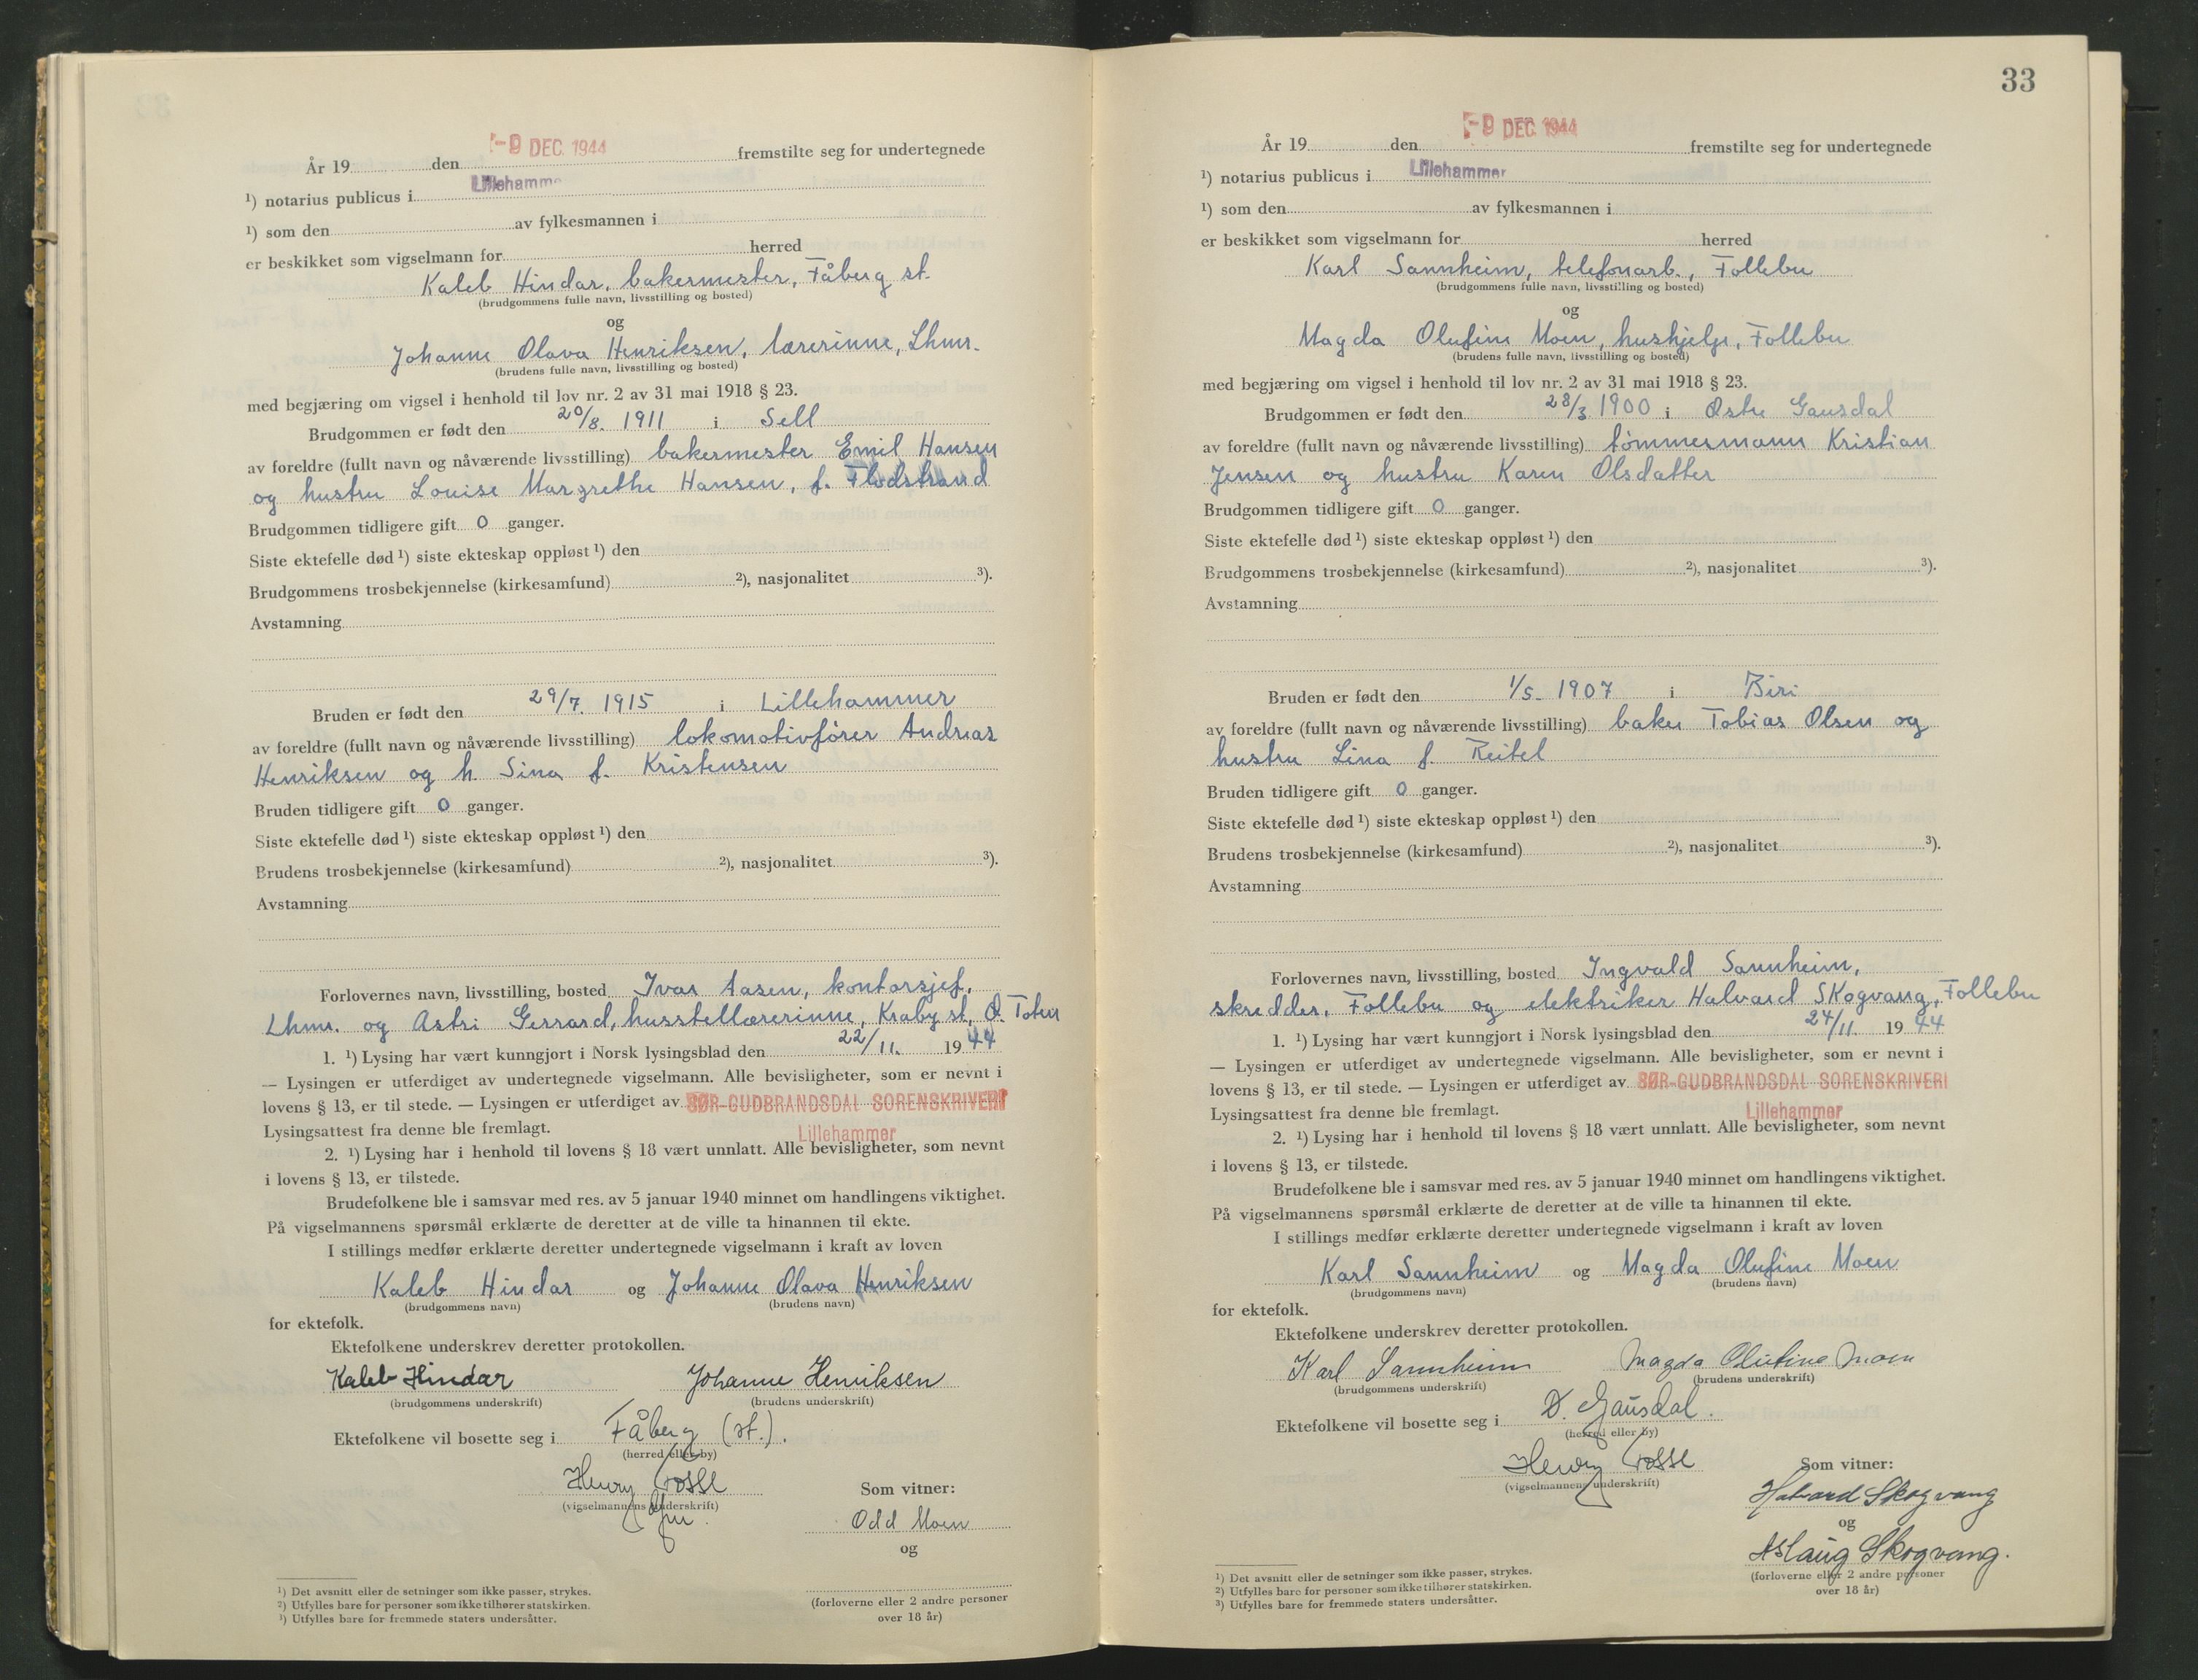 År 19 den -9 DEC. 1944 fremstilte seg for undertegnede
¹) notarius publicus i Lillehammer
¹) som den av fylkesmannen i
er beskikket som vigselmann for herred
Kaleb Hindar, bakermester, Fåberg st.
(brudgommens fulle navn, livsstilling og bosted)
og
Johanne Olava Henriksen, lærerinne, Lhmr.
(brudens fulle navn, livsstilling og bosted)
med begjæring om vigsel i henhold til lov nr. 2 av 31 mai 1918 § 23.
Brudgommen er født den 20/8. 1911 i Sell
av foreldre (fullt navn og nåværende livsstilling) bakermester Emil Hansen
og hustru Louise Margrethe Hansen, f. Flodstrand
Brudgommen tidligere gift 0 ganger.
Siste ektefelle død ¹) siste ekteskap oppløst ¹) den
Brudgommens trosbekjennelse (kirkesamfund) ²), nasjonalitet ³).
Avstamning
Bruden er født den 29/7. 1915 i Lillehammer
av foreldre (fullt navn og nåværende livsstilling) lokomotivfører Andreas
Henriksen og h. Sina f. Kristensen
Bruden tidligere gift 0 ganger.
Siste ektefelle død ¹) siste ekteskap oppløst ¹) den
Brudens trosbekjennelse (kirkesamfund) ²), nasjonalitet ³).
Avstamning
Forlovernes navn, livsstilling, bosted Ivar Aasen, kontorsjef,
Lhmr. og Astri Gerrard, husstellærerinne, Kraby st., Ø. Toten
1. ¹) Lysing har vært kunngjort i Norsk lysingsblad den 22/11. 1944
— Lysingen er utferdiget av undertegnede vigselmann. Alle bevisligheter, som er nevnt i
lovens § 13, er til stede. — Lysingen er utferdiget av SØR-GUDBRANDSDAL SORENSKRIVERI
Lysingsattest fra denne ble fremlagt. Lillehammer
2. ¹) Lysing har i henhold til lovens § 18 vært unnlatt. Alle bevisligheter, som nevnt
i lovens § 13, er tilstede.
Brudefolkene ble i samsvar med res. av 5 januar 1940 minnet om handlingens viktighet.
På vigselmannens spørsmål erklærte de deretter at de ville ta hinannen til ekte.
I stillings medfør erklærte deretter undertegnede vigselmann i kraft av loven
Kaleb Hindar og Johanne Olava Henriksen
(brudgommens navn) (brudens navn)
for ektefolk.
Ektefolkene underskrev deretter protokollen.
Kaleb Hindar Johanne Henriksen
(brudgommens underskrift) (brudens underskrift)
Ektefolkene vil bosette seg i Fåberg (st.).
(herred eller by)
Henry Fosse
(vigselmannens underskrift)
Som vitner:
Odd Moen
og
(forloverne eller 2 andre personer
over 18 år)
¹) Det avsnitt eller de setninger som ikke passer, strykes.
²) Utfylles bare for personer som ikke tilhører statskirken.
³) Utfylles bare for fremmede staters undersåtter.
33
År 19 den -9 DEC. 1944 fremstilte seg for undertegnede
¹) notarius publicus i Lillehammer
¹) som den av fylkesmannen i
er beskikket som vigselmann for herred
Karl Sannheim, telefonarb., Follebu
(brudgommens fulle navn, livsstilling og bosted)
og
Magda Olufine Moen, hushjelp, Follebu
(brudens fulle navn, livsstilling og bosted)
med begjæring om vigsel i henhold til lov nr. 2 av 31 mai 1918 § 23.
Brudgommen er født den 28/3 1900 i Østre Gausdal
av foreldre (fullt navn og nåværende livsstilling) tømmermann Kristian
Jensen og hustru Karen Olsdatter
Brudgommen tidligere gift 0 ganger.
Siste ektefelle død ¹) siste ekteskap oppløst ¹) den
Brudgommens trosbekjennelse (kirkesamfund) ²), nasjonalitet ³).
Avstamning
Bruden er født den 1/5. 1907 i Biri
av foreldre (fullt navn og nåværende livsstilling) baker Tobias Olsen og
hustru Lina f. Reitel
Bruden tidligere gift 0 ganger.
Siste ektefelle død ¹) siste ekteskap oppløst ¹) den
Brudens trosbekjennelse (kirkesamfund) ²), nasjonalitet ³).
Avstamning
Forlovernes navn, livsstilling, bosted Ingvald Sannheim,
skredder, Follebu og elektriker Halvard Skogvang, Follebu
1. ¹) Lysing har vært kunngjort i Norsk lysingsblad den 24/11 1944
— Lysingen er utferdiget av undertegnede vigselmann. Alle bevisligheter, som er nevnt i
lovens § 13, er til stede. — Lysingen er utferdiget av SØR-GUDBRANDSDAL SORENSKRIVERI
Lysingsattest fra denne ble fremlagt. Lillehammer
2. ¹) Lysing har i henhold til lovens § 18 vært unnlatt. Alle bevisligheter, som nevnt
i lovens § 13, er tilstede.
Brudefolkene ble i samsvar med res. av 5 januar 1940 minnet om handlingens viktighet.
På vigselmannens spørsmål erklærte de deretter at de ville ta hinannen til ekte.
I stillings medfør erklærte deretter undertegnede vigselmann i kraft av loven
Karl Sannheim og Magda Olufine Moen
(brudgommens navn) (brudens navn)
for ektefolk.
Ektefolkene underskrev deretter protokollen.
Karl Sannheim Magda Olufine Moen
(brudgommens underskrift) (brudens underskrift)
Ektefolkene vil bosette seg i Ø. Gausdal.
(herred eller by)
Henry Fosse
(vigselmannens underskrift)
Som vitner:
Halvard Skogvang
og
Aslaug Skogvang.
(forloverne eller 2 andre personer
over 18 år)
¹) Det avsnitt eller de setninger som ikke passer, strykes.
²) Utfylles bare for personer som ikke tilhører statskirken.
³) Utfylles bare for fremmede staters undersåtter.